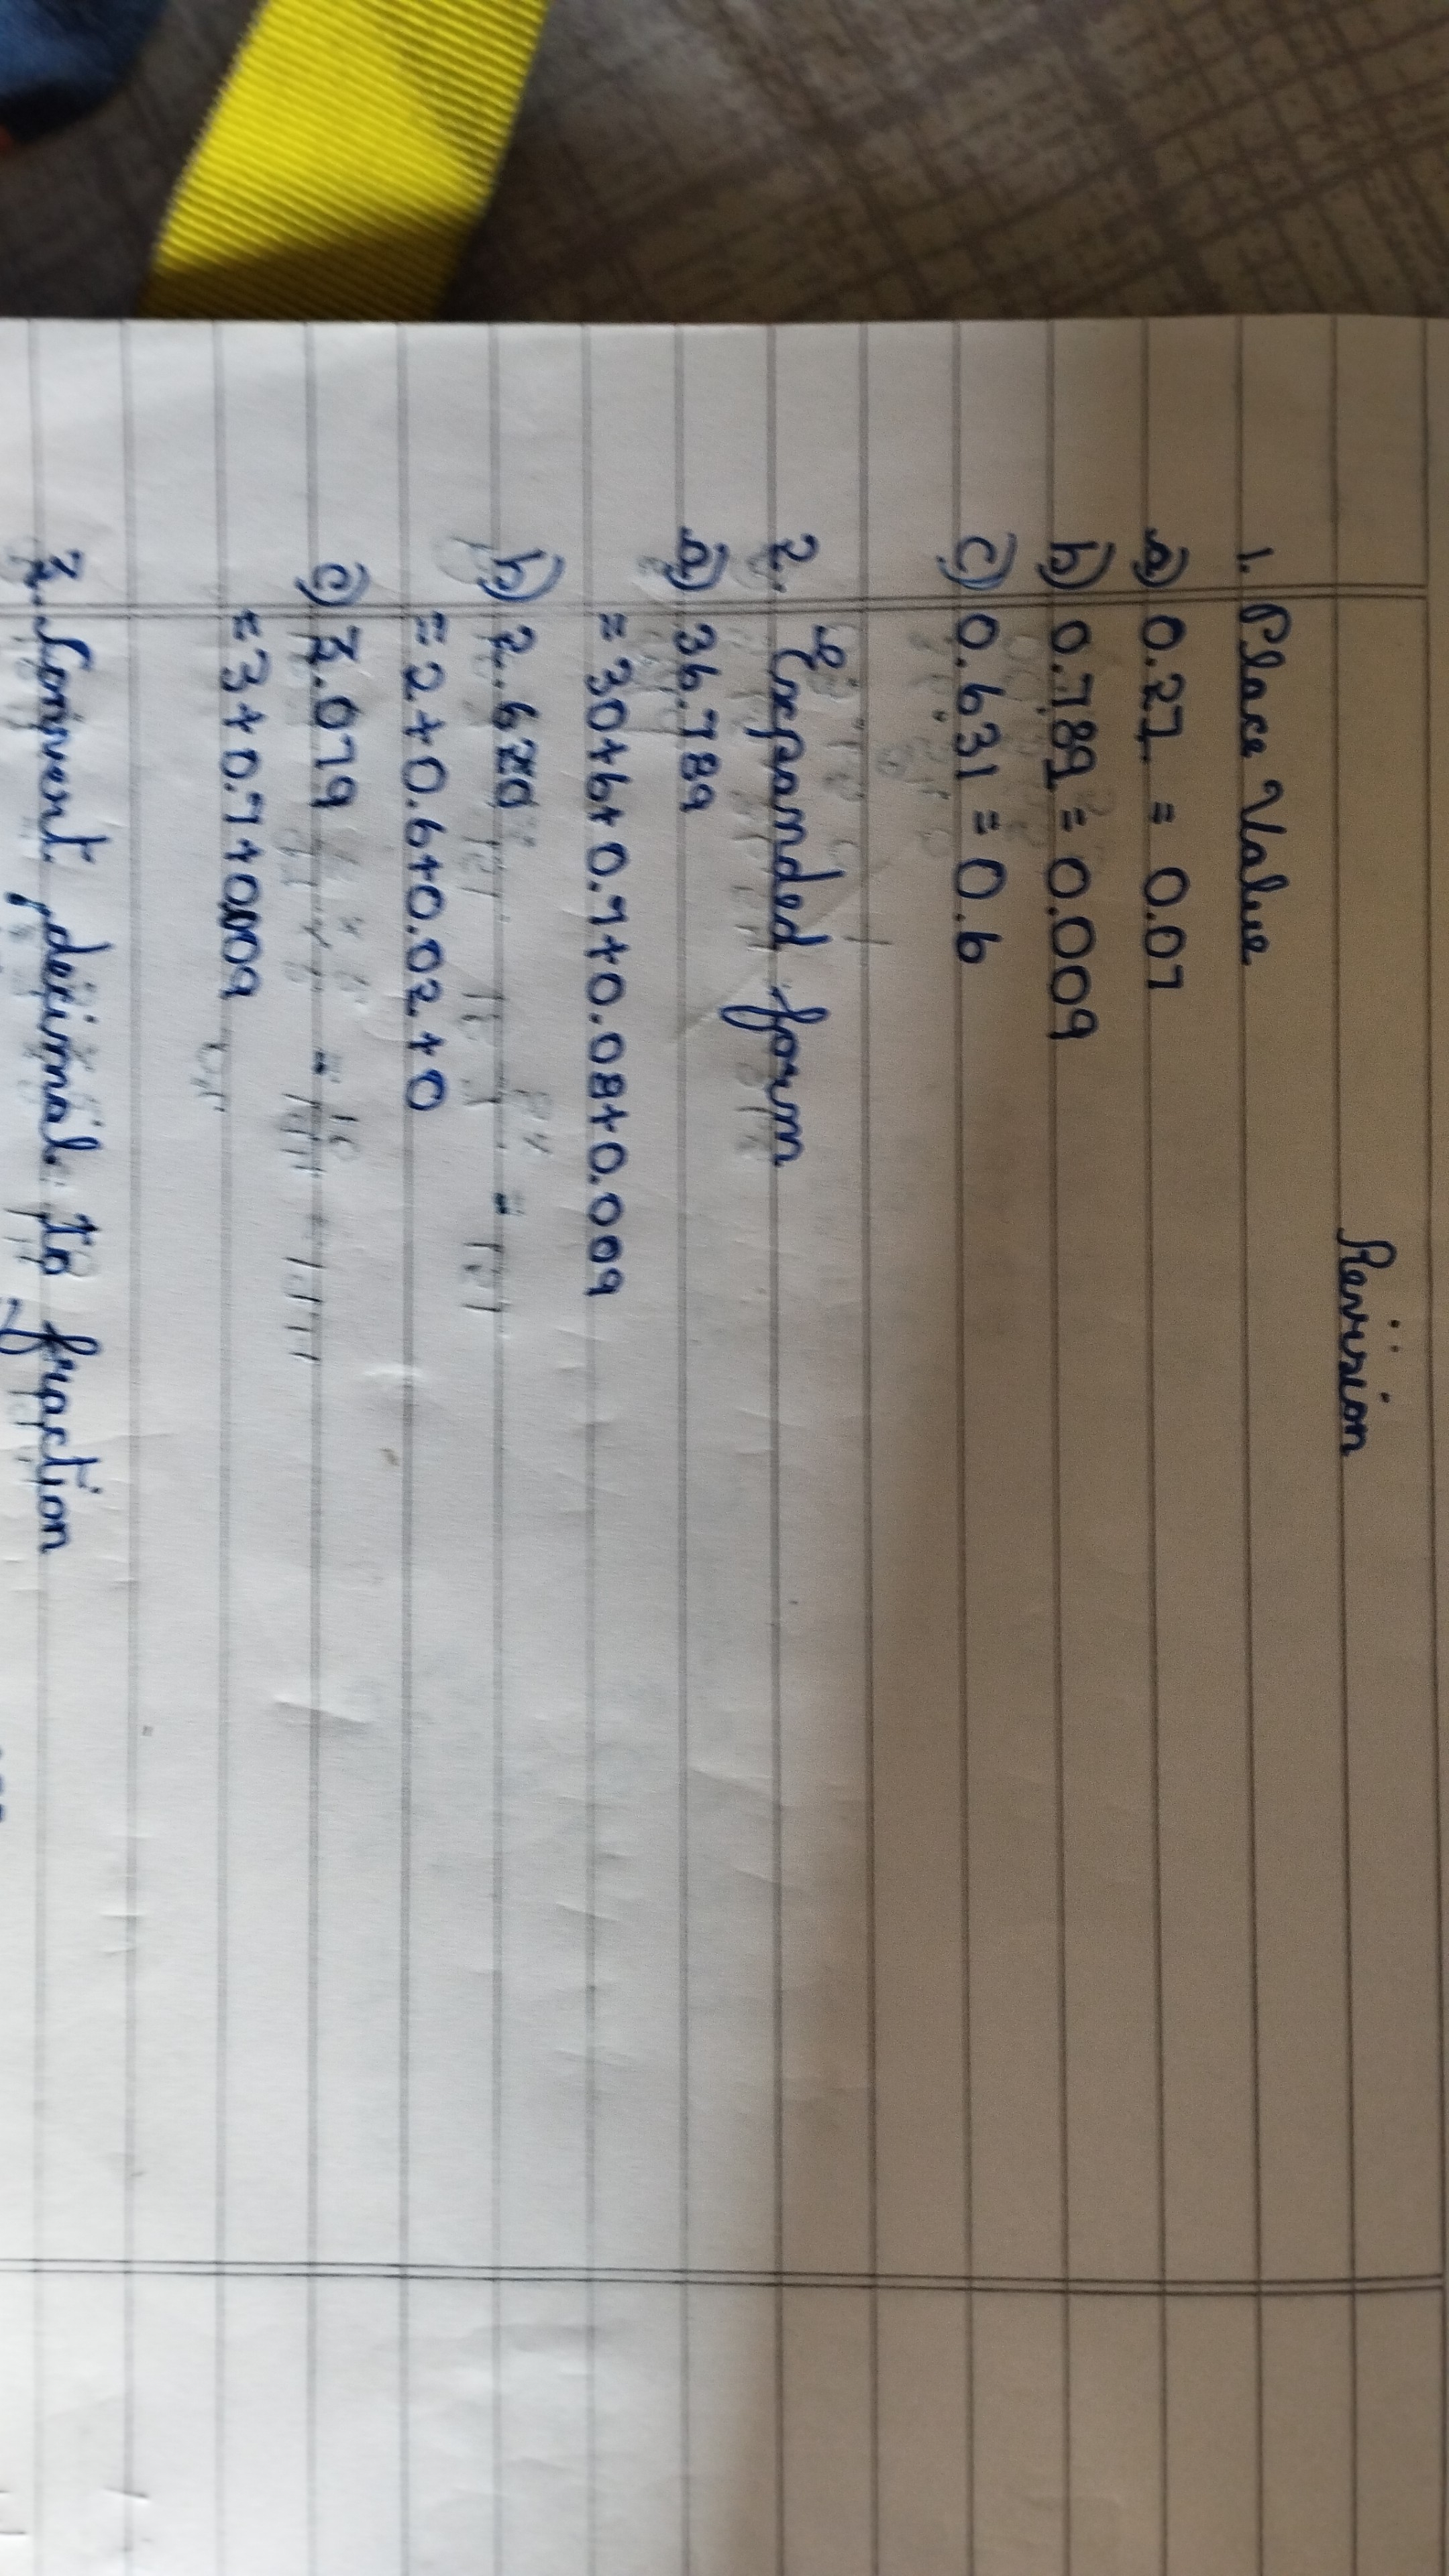 Revision
1. Place Value
a) 0.27 = 0.07
b) 0.789 = 0.009
c) 0.631 = 0.6
2. Expanded form
a) 36.789
= 30+6+0.7+0.08+0.009
b) 2.620
= 2+0.6+0.02+0
c) 3.079
= 3+0.7+0.009
3. Convert decimal to fraction